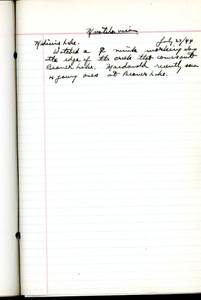 Mustela vison
July 23/44
Watched a ♀ mink working along
the edge of the creek that connects
Beaver Lake. recently seen
young ones at Beaver Lake.